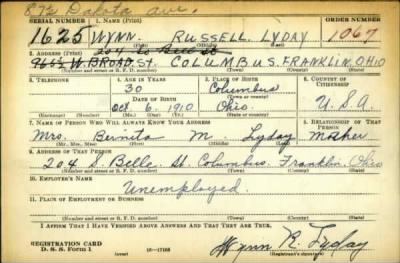 872 Dakota ave.
SERIAL NUMBER 1. NAME (Print) ORDER NUMBER
1625 WYNN. RUSSELL LYDAY 1067
(First) (Middle) (Last)
2. ADDRESS (Print)
W. BROAD. ST. COLUMBUS, FRANKLIN, OHIO
(Number and street or R. F. D. number) (Town) (County) (State)
3. TELEPHONE 4. AGE IN YEARS 5. PLACE OF BIRTH 6. COUNTRY OF CITIZENSHIP
30 Columbus
DATE OF BIRTH (Town or county)
Oct. 6, 1910 Ohio. U.S.A
(Exchange) (No.) (Mo.) (Day) (Yr.) (State or country)
7. NAME OF PERSON WHO WILL ALWAYS KNOW YOUR ADDRESS 8. RELATIONSHIP OF THAT PERSON
Mrs. M. Lyday Mother
(Mr., Mrs., Miss) (First) (Middle) (Last)
9. ADDRESS OF THAT PERSON
204 S. Belle St. Columbus, Franklin, Ohio
(Number and street or R. F. D. number) (Town) (County) (State)
10. EMPLOYER'S NAME
Unemployed.
11. PLACE OF EMPLOYMENT OR BUSINESS
(Number and street or R. F. D. number) (Town) (County) (State)
I AFFIRM THAT I HAVE VERIFIED ABOVE ANSWERS AND THAT THEY ARE TRUE.
REGISTRATION CARD
D. S. S. Form 1 (over) 16—17105 Wynn R. Lyday
(Registrant's signature)